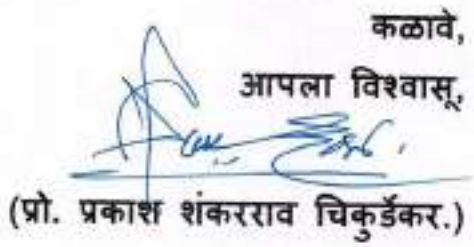 कळावे,
आपला विश्वासू,
(प्रो. प्रकाश शंकरराव चिकुर्डेकर.)